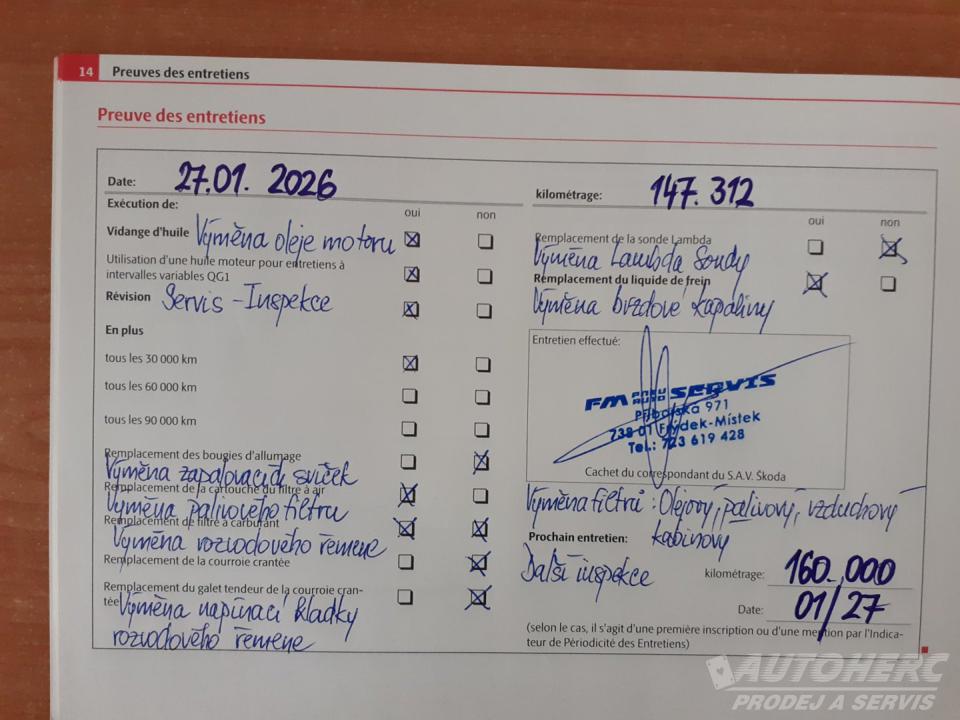 14 Preuves des entretiens
Preuve des entretiens
Date: 27.01. 2026
kilométrage: 147.312
Exécution de:
oui non
Vidange d'huile Výměna oleje motoru
Utilisation d'une huile moteur pour entretiens à
intervalles variables QG1
Révision Servis - Inspekce
En plus
tous les 30 000 km
tous les 60 000 km
tous les 90 000 km
Remplacement des bougies d'allumage
Výměna zapalovacích svíček
Remplacement de la cartouche du filtre à air
Výměna palivového filtru
Remplacement de filtre à carburant
Výměna rozvodového řemene
Remplacement de la courroie crantée
Remplacement du galet tendeur de la courroie cran-
tée Výměna napínací kladky
rozvodového řemene
oui non
Remplacement de la sonde Lambda
Výměna Lambda Sondy
Remplacement du liquide de frein
Výměna brzdové kapaliny
Entretien effectué:
FM PNEU AUTO SERVIS
Příborská 971
738 01 Frýdek-Místek
Tel.: 723 619 428
Cachet du correspondant du S.A.V. Škoda
Výměna filtrů: Olejový, palivový, vzduchový
kabinový
Prochain entretien:
Další inspekce
kilométrage: 160.000
Date: 01/27
(selon le cas, il s'agit d'une première inscription ou d'une mention par l'Indica-
teur de Périodicité des Entretiens)
AUTOHERC
PRODEJ A SERVIS